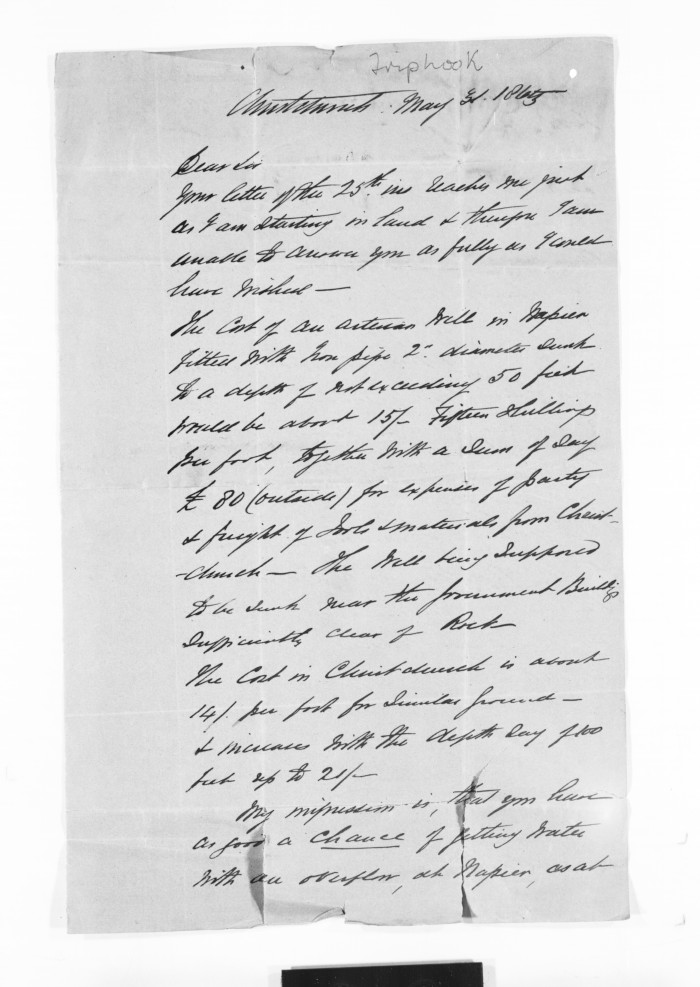 Triphook
Christchurch. May 31. 1863
Dear Sir
Your letter of the 25th ins reaches me just
as I am starting inland & therefore I am
unable to answer you as fully as I could
have wished —
The cost of an artesian Well in Napier
fitted with Iron pipe 2" diameter sunk
to a depth of not exceeding 50 feet
would be about 15/- Fifteen Shillings
per foot, together with a Sum of Say
£ 80 (outside) for expenses of party
& freight of Tools & materials from Christ-
-church — The Well being supposed
to be sunk near the Government Buildings
sufficiently clear of Rock
The Cost in Christchurch is about
14/. per foot for similar ground —
& increases with the depth Say 100
feet up to 21/-
My impression is, that you have
as good a chance of getting water
with an overflow, at Napier, as at